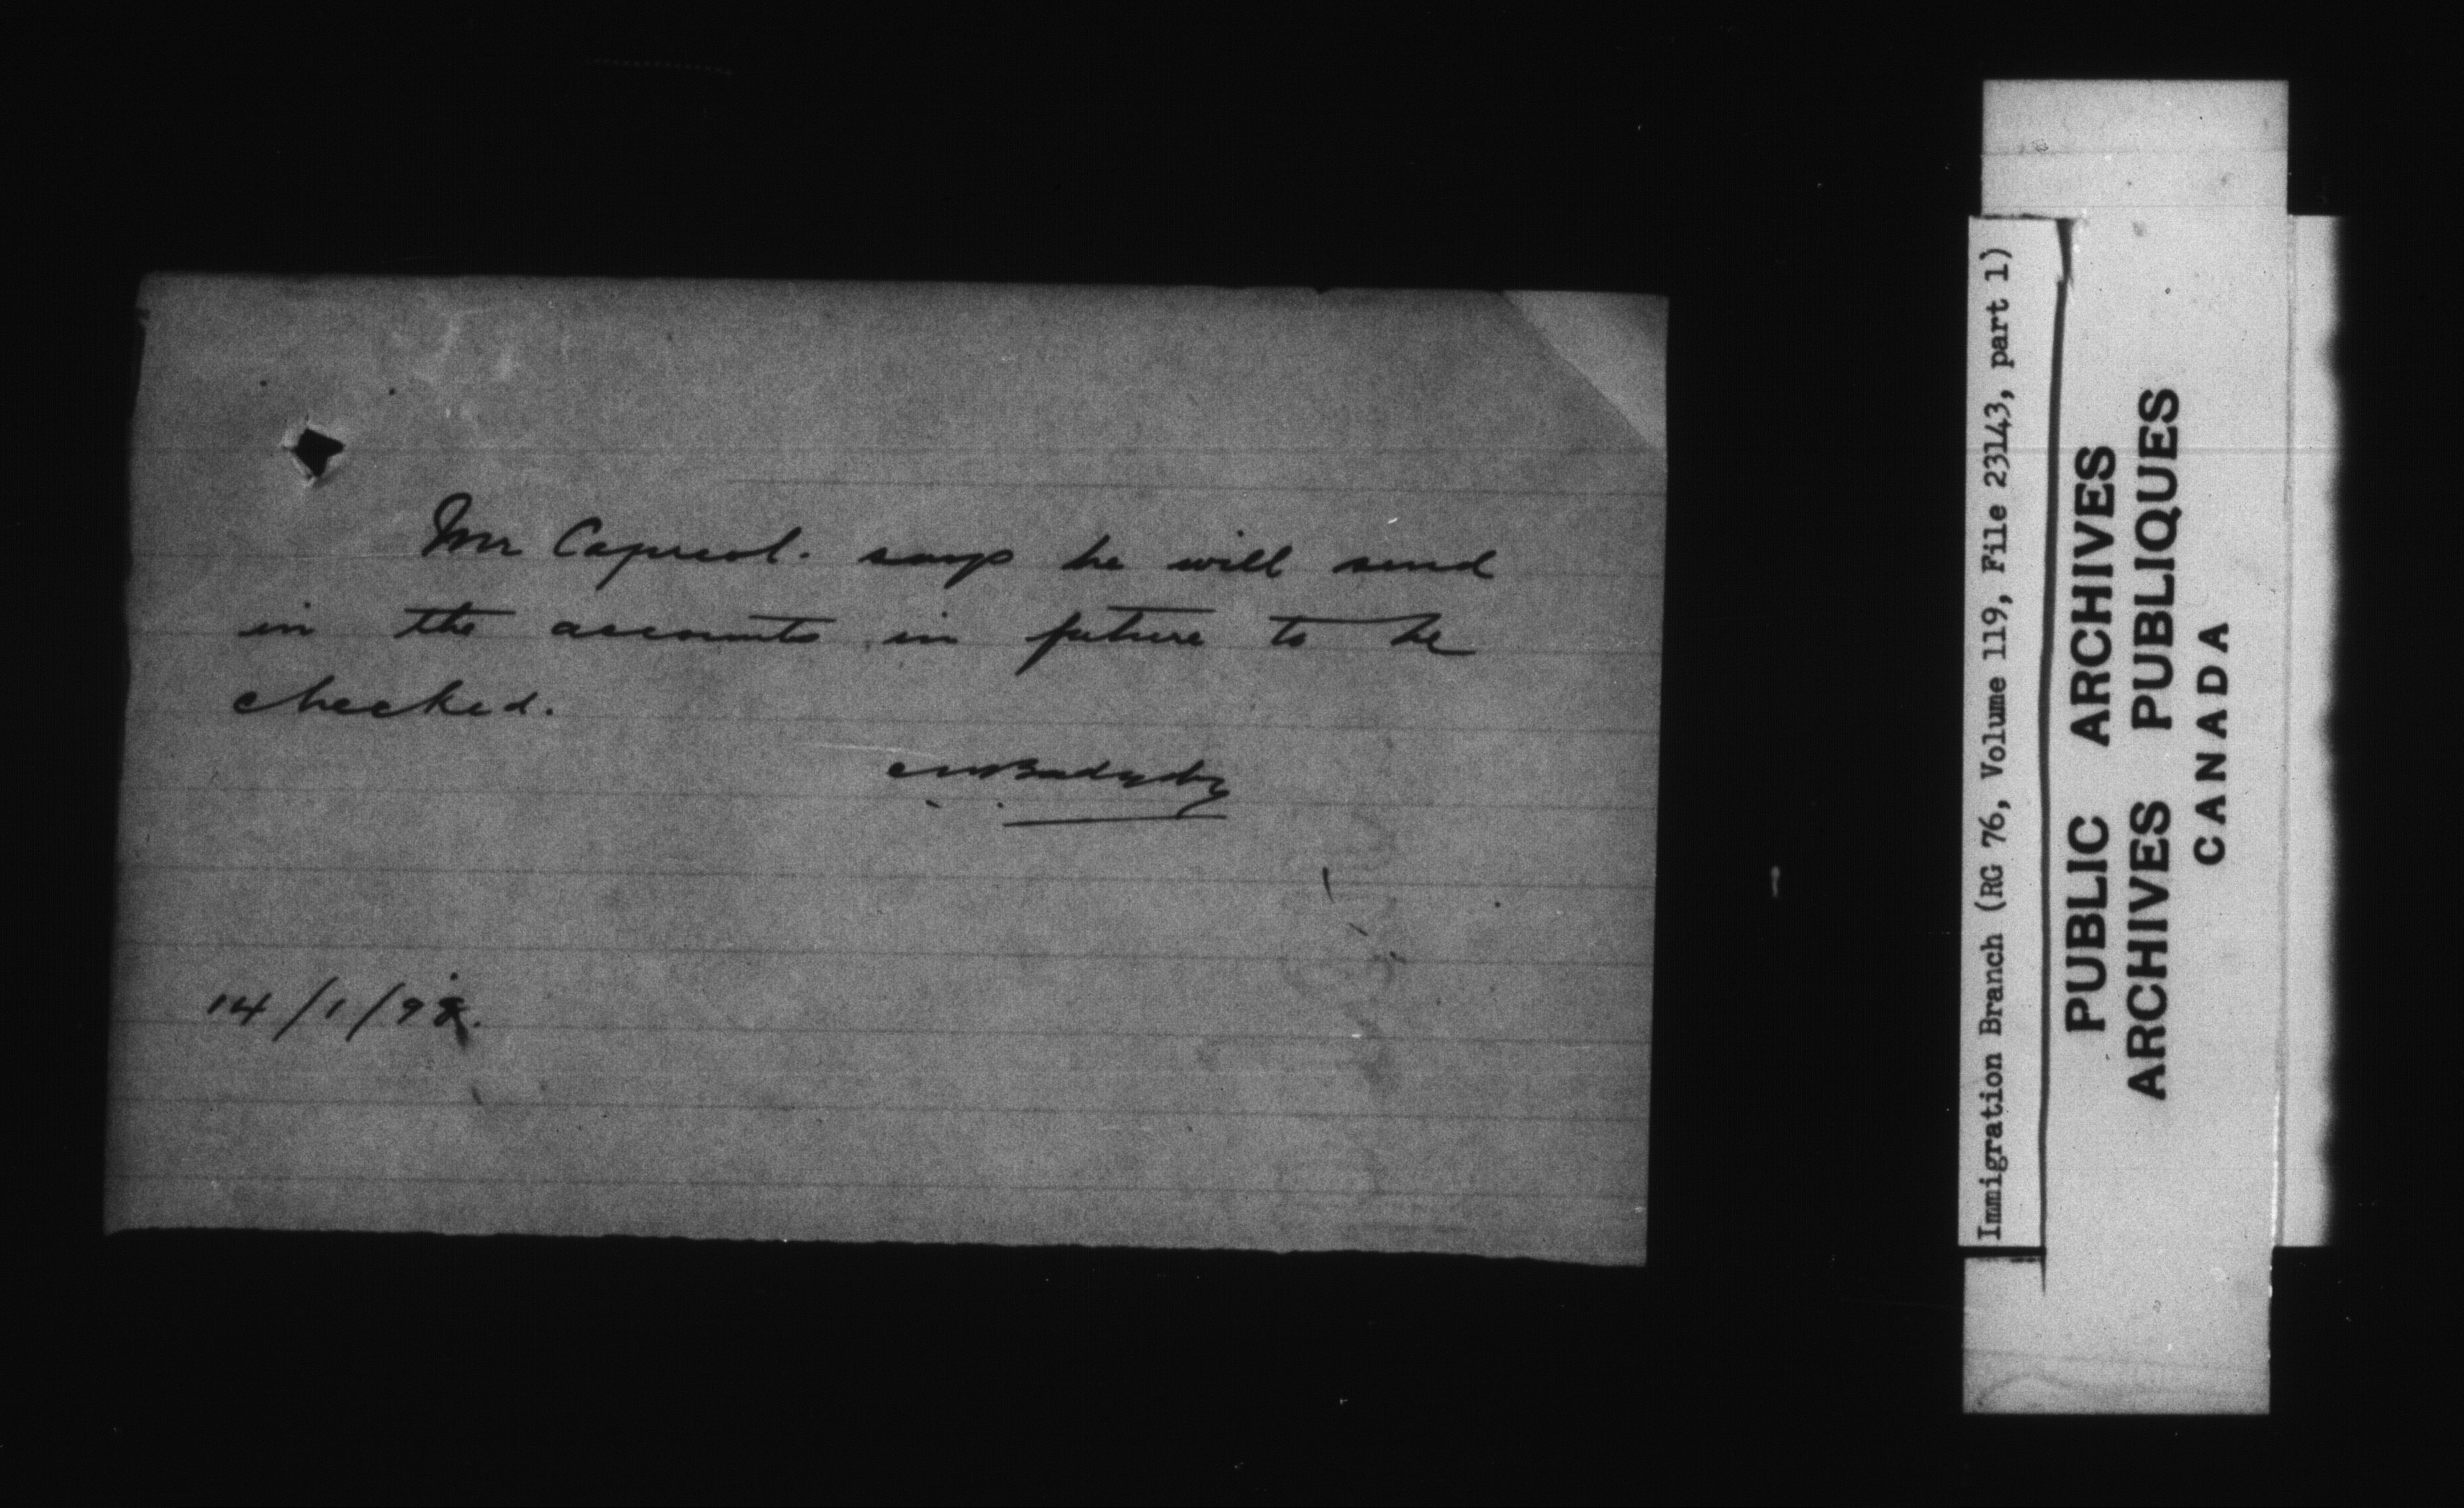 Mr Capreol. says he will send
in the accounts in future to be
checked.
14/1/98.
Immigration Branch (RG 76, Volume 119, File 23143, part 1)
PUBLIC ARCHIVES
ARCHIVES PUBLIQUES
CANADA